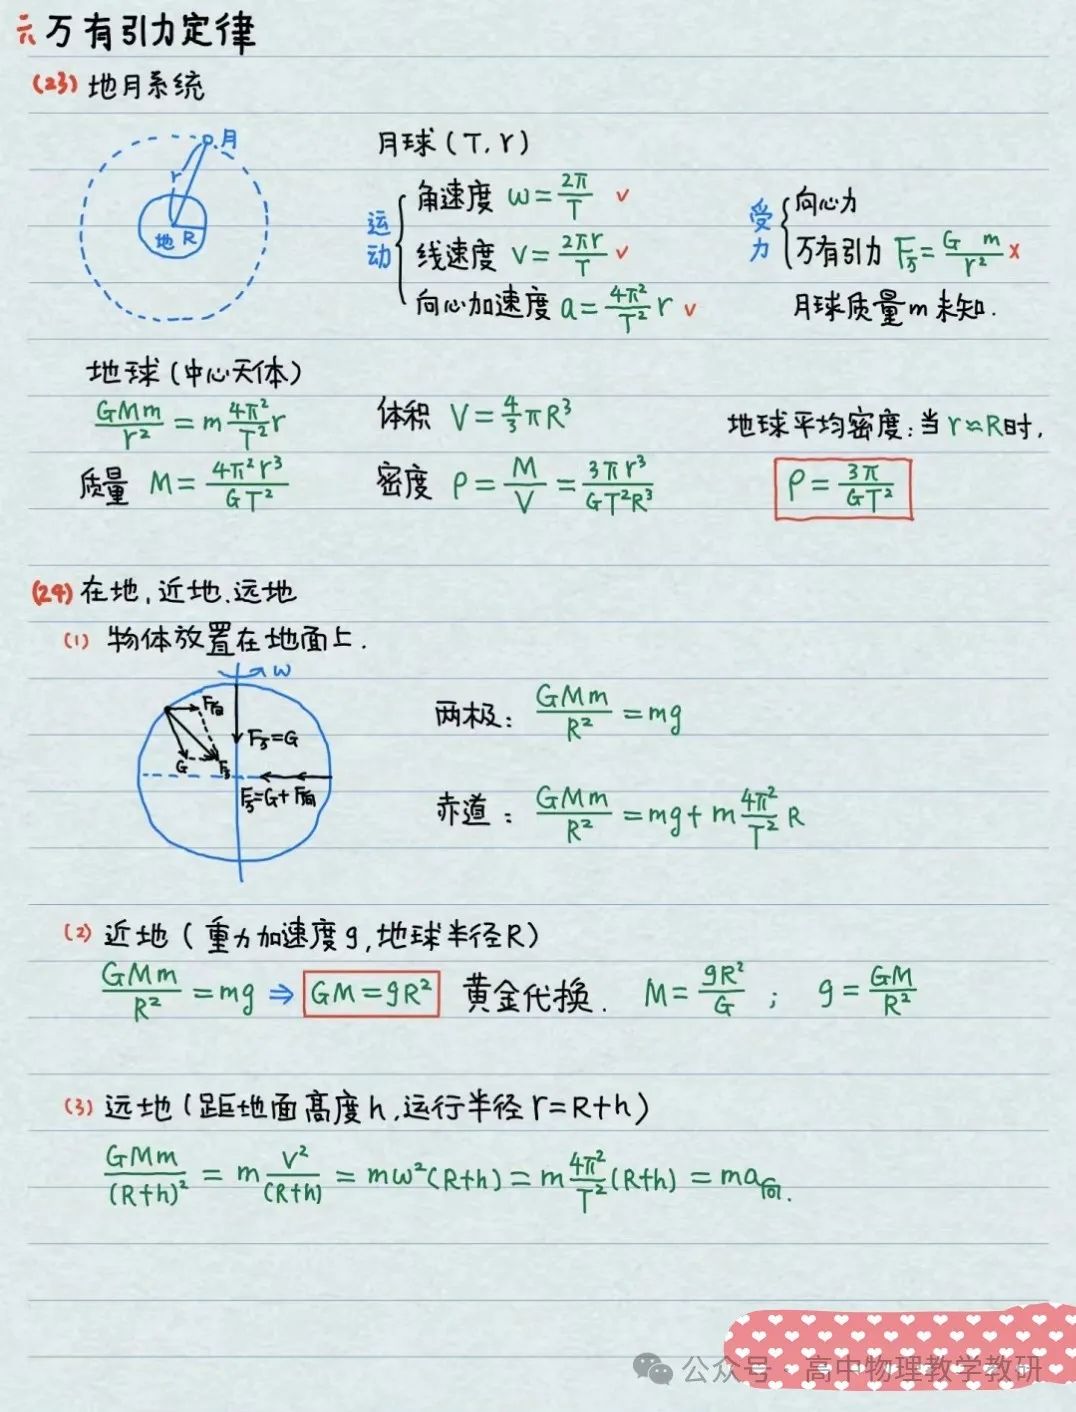 六 万有引力定律
(23) 地月系统
月
r
地 R
月球(T, r)
运动
角速度 ω = 2π/T ✓
线速度 v = 2πr/T ✓
向心加速度 a = 4π²/T² r ✓
受力
向心力
万有引力 F万 = G m/r² ×
月球质量m未知.
地球(中心天体)
GMm/r² = m 4π²/T² r
质量 M = 4π²r³/GT²
体积 V = 4/3 πR³
密度 ρ = M/V = 3πr³/GT²R³
地球平均密度: 当 r≈R时,
ρ = 3π/GT²
(24) 在地, 近地. 远地
(1) 物体放置在地面上.
ω
F向
G
F万
F万=G
F万=G+F向
两极: GMm/R² = mg
赤道: GMm/R² = mg + m 4π²/T² R
(2) 近地(重力加速度g, 地球半径R)
GMm/R² = mg ⇒ GM = gR² 黄金代换. M = gR²/G ; g = GM/R²
(3) 远地(距地面高度h, 运行半径r=R+h)
GMm/(R+h)² = m v²/(R+h) = mω²(R+h) = m 4π²/T² (R+h) = ma向.
公众号 · 高中物理教学教研